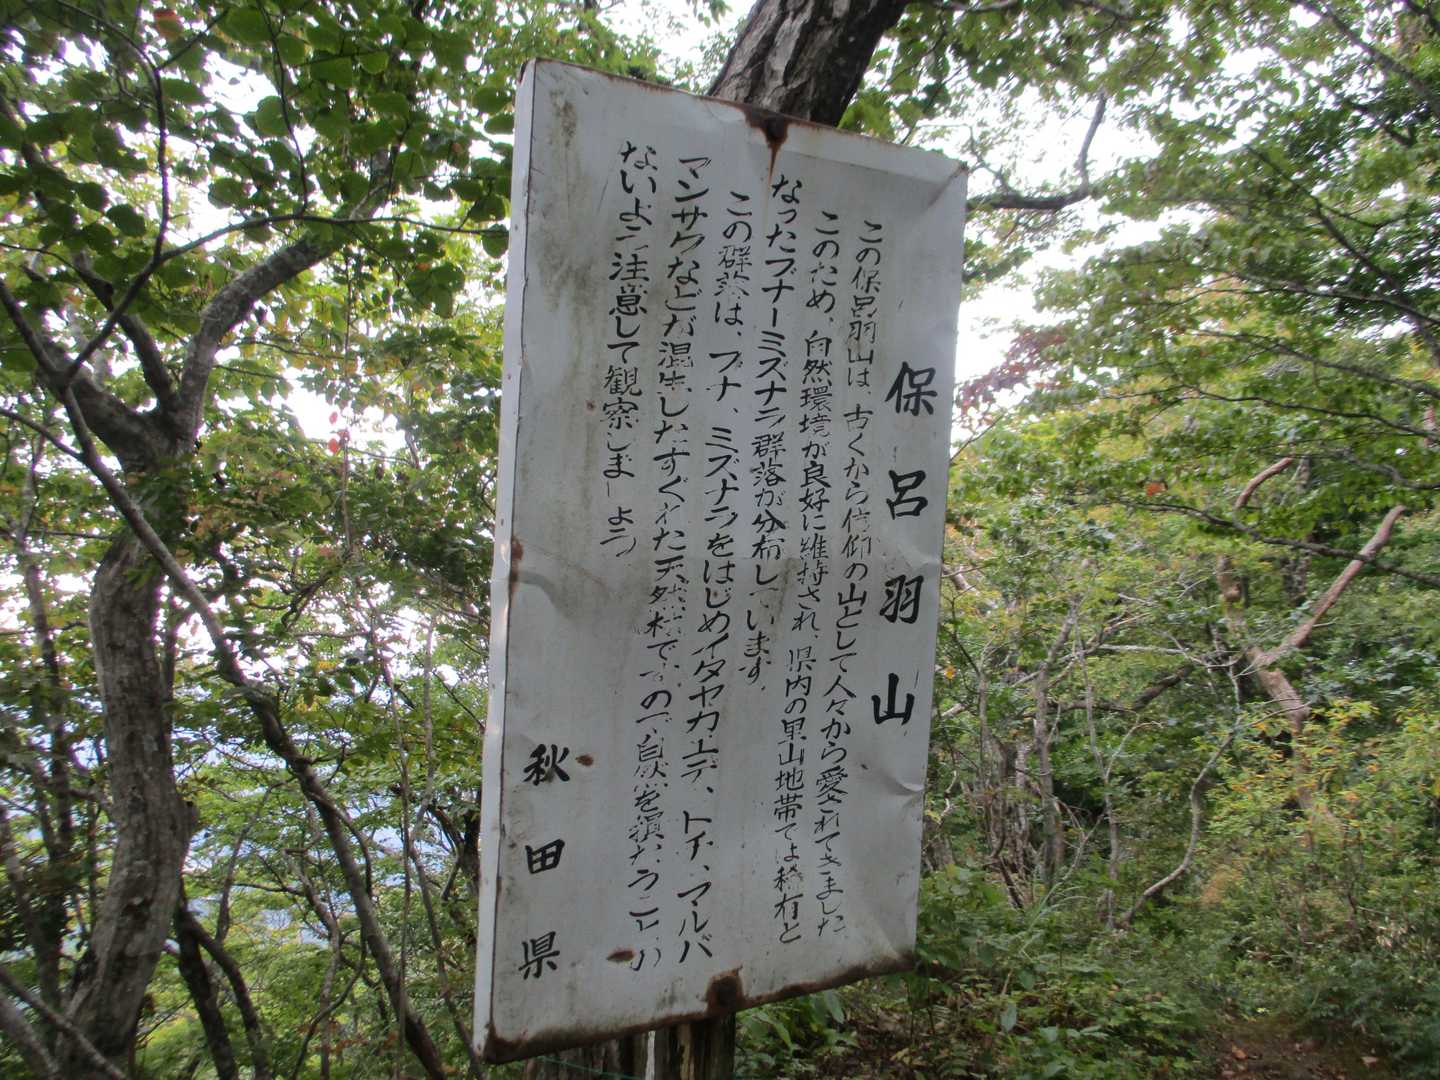 保呂羽山
この保呂羽山は、古くから信仰の山として人々から愛されてきました
このため、自然環境が良好に維持され、県内の里山地帯では稀有と
なったブナーミズナラ群落が分布しています。
この群落は、ブナ、ミズナラをはじめイタヤカエデ、トチ、マルバ
マンサクなどが混生したすぐれた天然林ですので、自然を損なうことの
ないよう注意して観察しましょう
秋田県